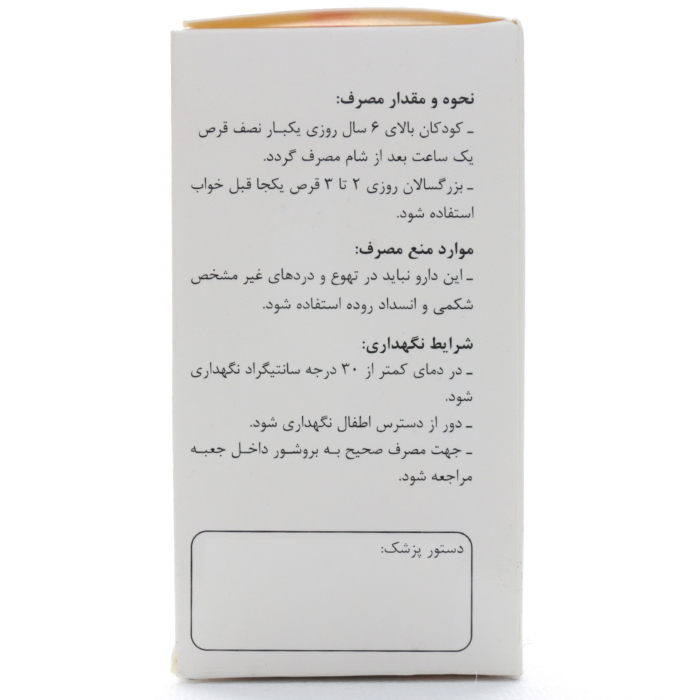 نحوه و مقدار مصرف:
ـ کودکان بالای ۶ سال روزی یکبار نصف قرص
یک ساعت بعد از شام مصرف گردد.
ـ بزرگسالان روزی ۲ تا ۳ قرص یکجا قبل خواب
استفاده شود.
موارد منع مصرف:
ـ این دارو نباید در تهوع و دردهای غیر مشخص
شکمی و انسداد روده استفاده شود.
شرایط نگهداری:
ـ در دمای کمتر از ۳۰ درجه سانتیگراد نگهداری
شود.
ـ دور از دسترس اطفال نگهداری شود.
ـ جهت مصرف صحیح به بروشور داخل جعبه
مراجعه شود.
دستور پزشک: